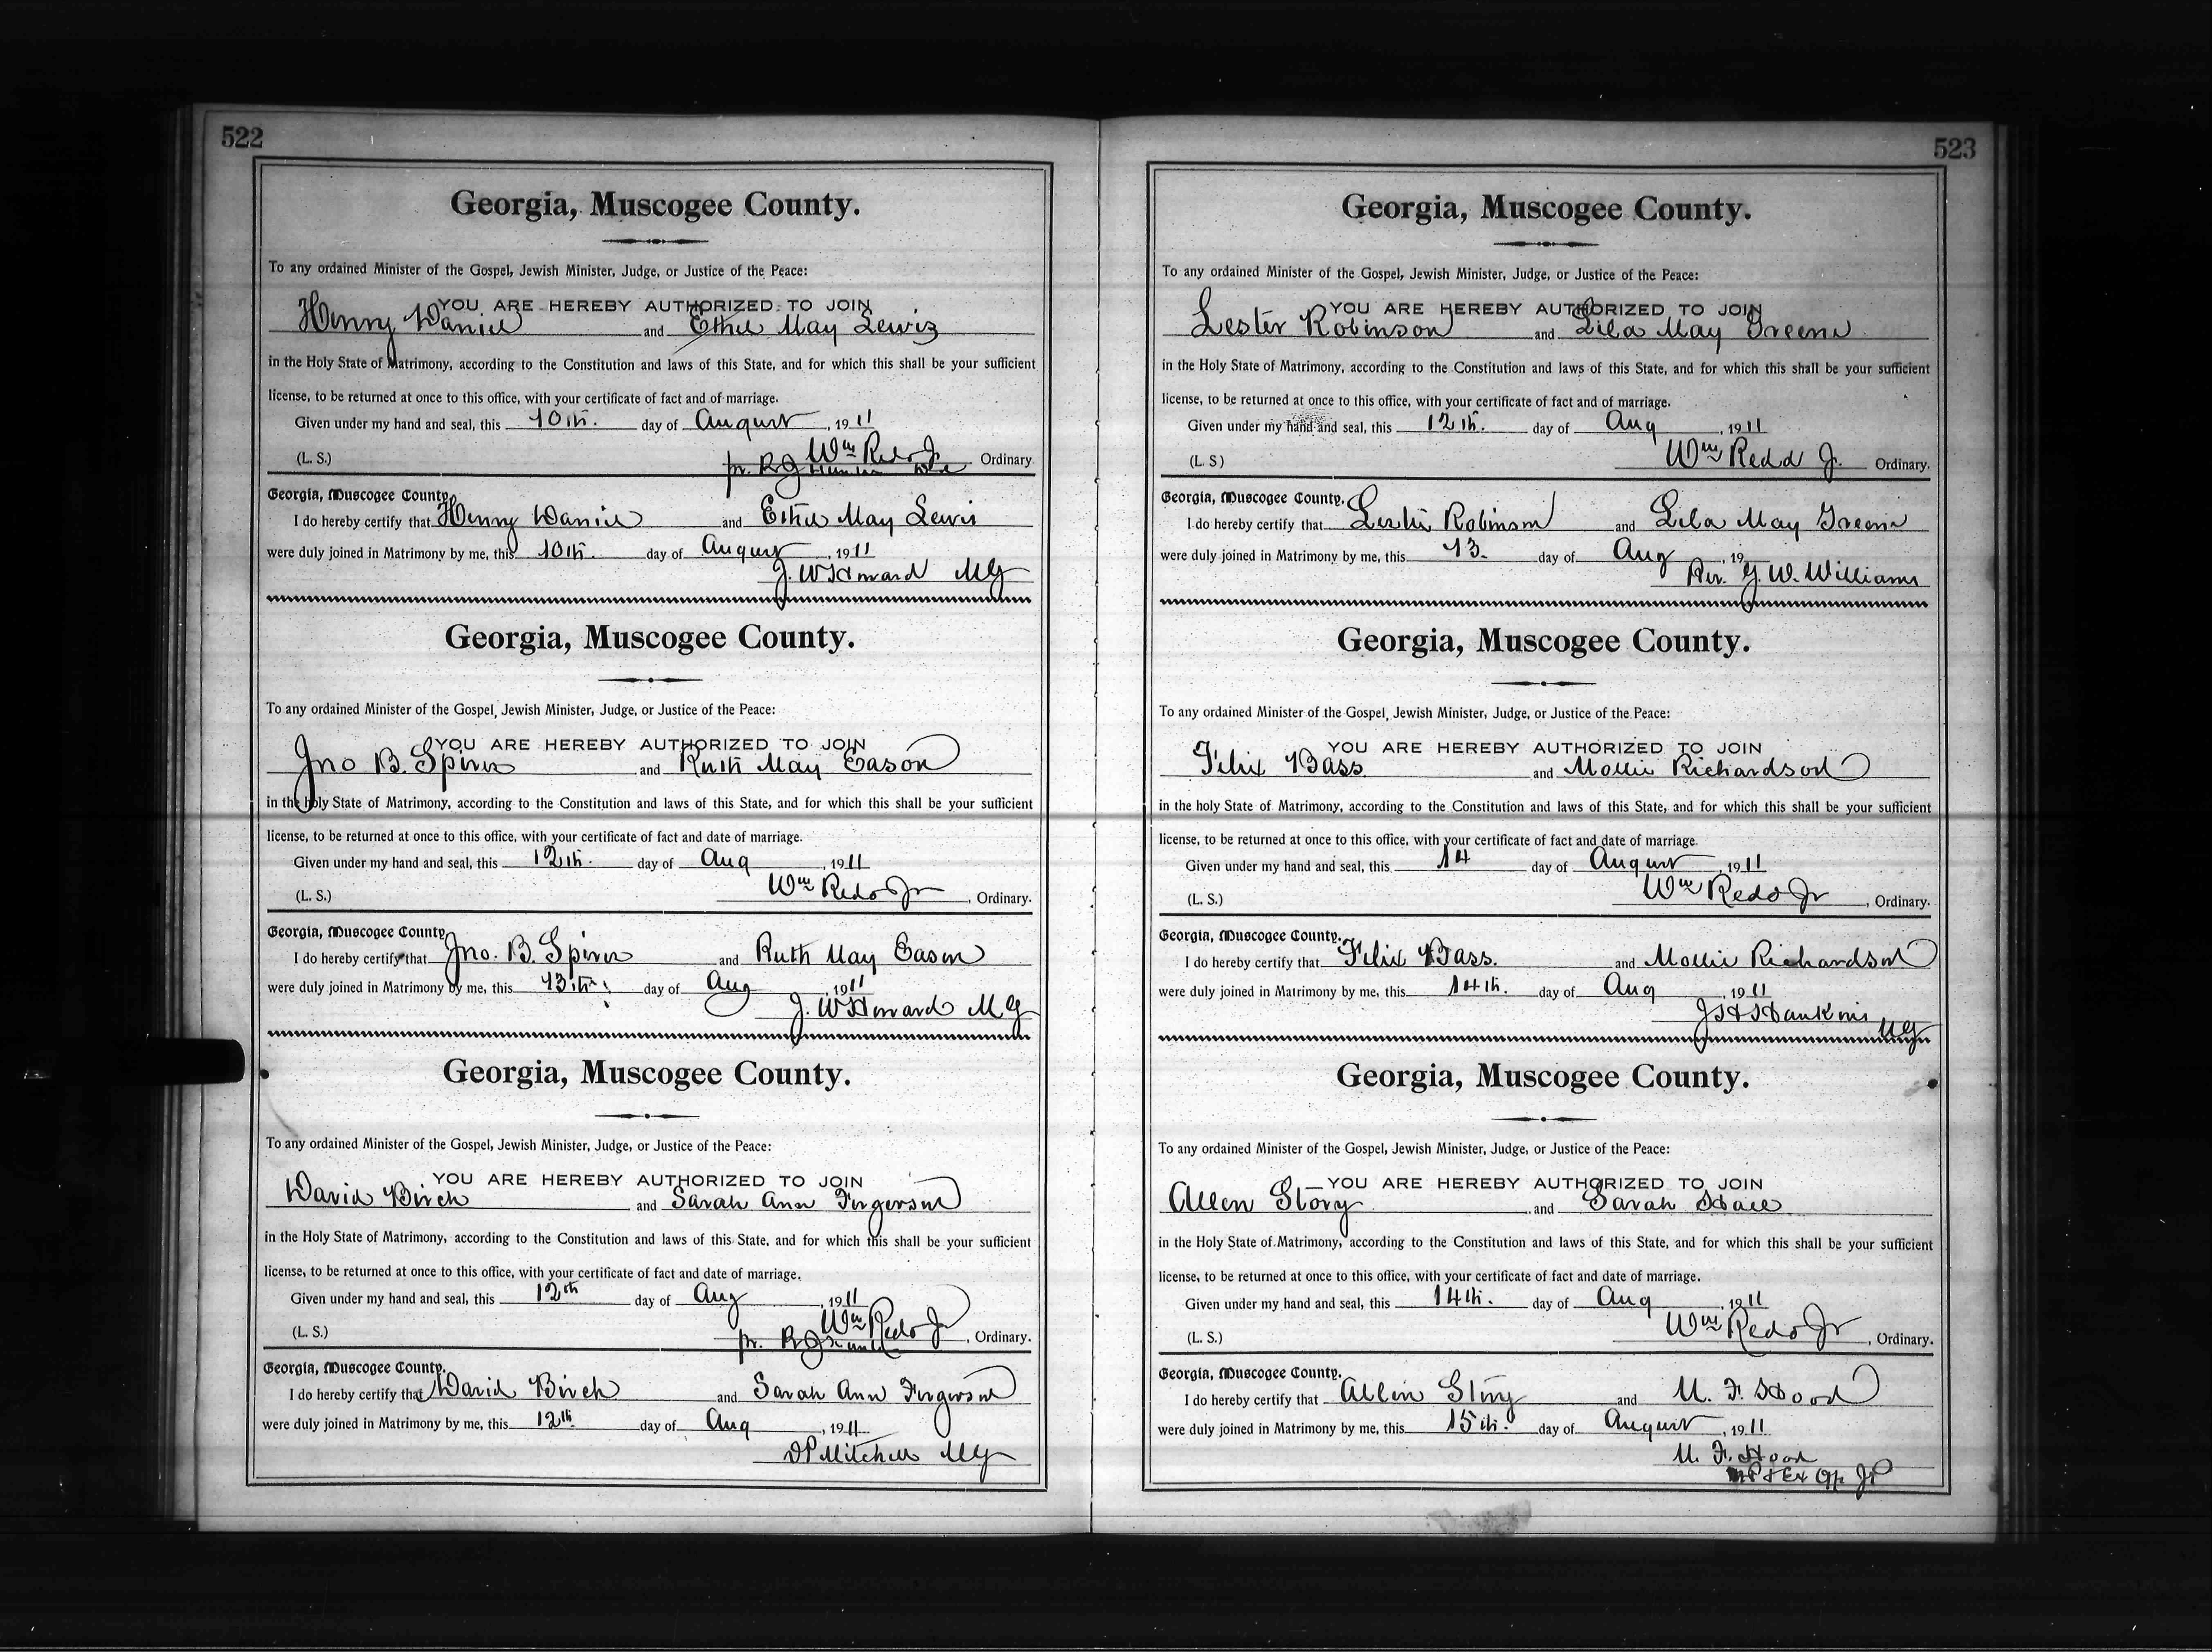 522
Georgia, Muscogee County.
To any ordained Minister of the Gospel, Jewish Minister, Judge, or Justice of the Peace:
YOU ARE HEREBY AUTHORIZED TO JOIN
Henry Daniel and Ethel May Lewis
in the Holy State of Matrimony, according to the Constitution and laws of this State, and for which this shall be your sufficient
license, to be returned at once to this office, with your certificate of fact and of marriage.
Given under my hand and seal, this 10th. day of August, 1911
Wm Redd Jr
(L. S.) pr. R J Ordinary.
Georgia, Muscogee County.
I do hereby certify that Henry Daniel and Ethel May Lewis
were duly joined in Matrimony by me, this 10th. day of August, 1911
J. W Howard MG
Georgia, Muscogee County.
To any ordained Minister of the Gospel, Jewish Minister, Judge, or Justice of the Peace:
YOU ARE HEREBY AUTHORIZED TO JOIN
Jno B. Spivey and Ruth May Eason
in the holy State of Matrimony, according to the Constitution and laws of this State, and for which this shall be your sufficient
license, to be returned at once to this office, with your certificate of fact and date of marriage.
Given under my hand and seal, this 12th. day of Aug, 1911
Wm Redd Jr
(L. S.) , Ordinary.
Georgia, Muscogee County.
I do hereby certify that Jno. B. Spivey and Ruth May Eason
were duly joined in Matrimony by me, this 13th. day of Aug, 1911
J. W Howard MG
Georgia, Muscogee County.
To any ordained Minister of the Gospel, Jewish Minister, Judge, or Justice of the Peace:
YOU ARE HEREBY AUTHORIZED TO JOIN
David Birch and Sarah Ann Firgerson
in the Holy State of Matrimony, according to the Constitution and laws of this State, and for which this shall be your sufficient
license, to be returned at once to this office, with your certificate of fact and date of marriage.
Given under my hand and seal, this 12th day of Aug, 1911
Wm Redd Jr
(L. S.) pr. R J , Ordinary.
Georgia, Muscogee County.
I do hereby certify that David Birch and Sarah Ann Firgerson
were duly joined in Matrimony by me, this 12th. day of Aug, 1911
D P Mitchell MG
523
Georgia, Muscogee County.
To any ordained Minister of the Gospel, Jewish Minister, Judge, or Justice of the Peace:
YOU ARE HEREBY AUTHORIZED TO JOIN
Lester Robinson and Lila May Greene
in the Holy State of Matrimony, according to the Constitution and laws of this State, and for which this shall be your sufficient
license, to be returned at once to this office, with your certificate of fact and of marriage.
Given under my hand and seal, this 12th. day of Aug, 1911
(L. S) Wm Redd Jr. Ordinary.
Georgia, Muscogee County.
I do hereby certify that Leslie Robinson and Lila May Greene
were duly joined in Matrimony by me, this 13. day of Aug, 19
Rev. G. W. Williams
Georgia, Muscogee County.
To any ordained Minister of the Gospel, Jewish Minister, Judge, or Justice of the Peace:
YOU ARE HEREBY AUTHORIZED TO JOIN
Felix Bass and Mollie Richardson
in the holy State of Matrimony, according to the Constitution and laws of this State, and for which this shall be your sufficient
license, to be returned at once to this office, with your certificate of fact and date of marriage.
Given under my hand and seal, this 14 day of August, 1911
Wm Redd Jr
(L. S.) , Ordinary.
Georgia, Muscogee County.
I do hereby certify that Felix Bass. and Mollie Richardson
were duly joined in Matrimony by me, this 14th. day of Aug, 1911
J H Hankins
MG
Georgia, Muscogee County.
To any ordained Minister of the Gospel, Jewish Minister, Judge, or Justice of the Peace:
YOU ARE HEREBY AUTHORIZED TO JOIN
Allen Story and Sarah Hall
in the Holy State of Matrimony, according to the Constitution and laws of this State, and for which this shall be your sufficient
license, to be returned at once to this office, with your certificate of fact and date of marriage.
Given under my hand and seal, this 14th. day of Aug, 1911
Wm Redd Jr
(L. S.) , Ordinary.
Georgia, Muscogee County.
I do hereby certify that Allen Story and M. F. Hood
were duly joined in Matrimony by me, this 15th. day of August, 1911
M. F. Hood
NP & Ex Off JP